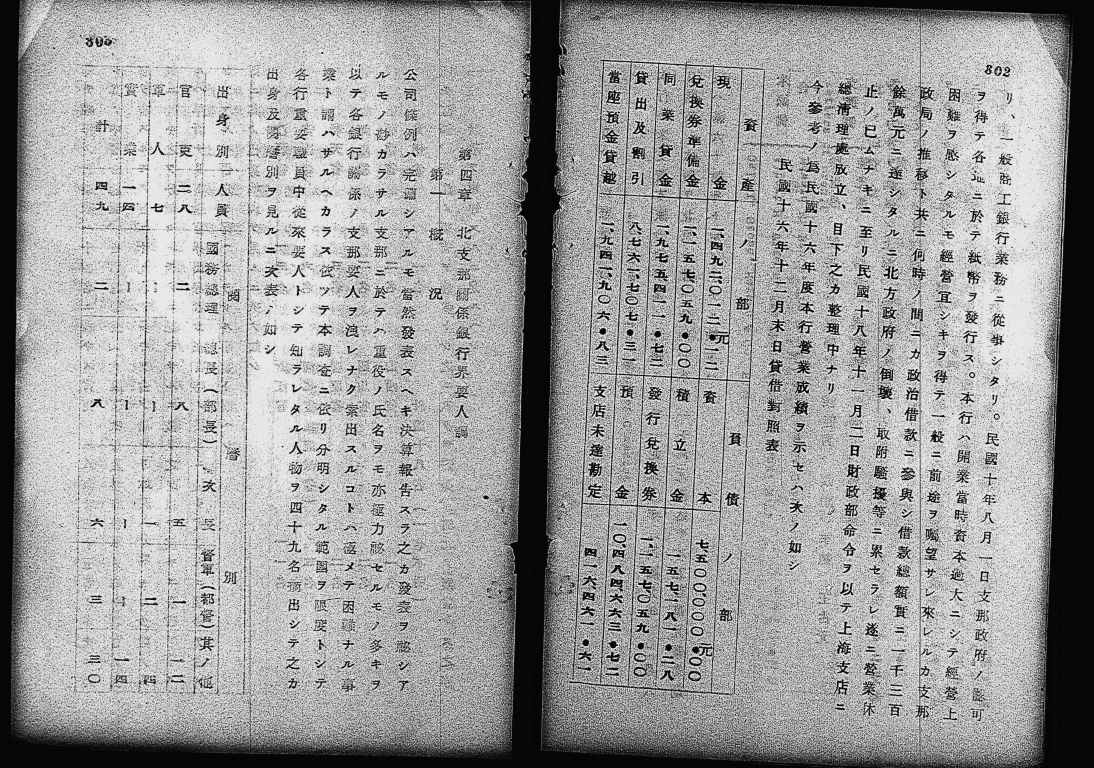 802
リ、一般商工銀行業務ニ從事シタリ。民國十年八月一日支那政府ノ認可
ヲ得テ各地ニ於テ紙幣ヲ發行ス。本行ハ開業當時資本過大ニシテ經營上
困難ヲ感シタルモ經營宜シキヲ得テ一般ニ前途ヲ囑望サレ來レルカ支那
政局ノ推移ト共ニ何時ノ間ニカ政治借款ニ參與シ借款總額實ニ一千三百
餘萬元ニ達シタルニ北方政府ノ倒壞、取附騷擾等ニ累セラレ遂ニ營業休
止ノ已ムナキニ至リ民國十八年十一月二日財政部命令ヲ以テ上海支店ニ
總清理處成立、目下之カ整理中ナリ
今參考ノ爲民國十六年度本行營業成績ヲ示セハ次ノ如シ
民國十六年十二月末日貸借對照表
資產ノ部
負債ノ部
現金
資本
兌換券準備金
積立金
同業貸金
發行兌換券
貸出及割引
預金
當座預金貸越
支店未達勘定
803
第四章 北支那關係銀行界要人調
第一 概況
公司條例ハ完備シアルモ當然發表スヘキ決算報告スラ之カ發表ヲ認シア
ルモノ尠カラサル支那ニ於テハ重役ノ氏名ヲモ亦極力祕セルモノ多キヲ
以テ各銀行關係ノ支那要人ヲ洩レナク索出スルコトハ極メテ困難ナル事
業ト謂ハサルヘカラス依ツテ本調査ニ依リ分明シタル範圍ヲ限度トシテ
各行重要職員中從來要人トシテ知ラレタル人物ヲ四十九名摘出シテ之カ
出身及閱曆別ヲ見ルニ次表ノ如シ
出身別 人員 閱曆別
國務總理 總長(部長) 次長 督軍(都督) 其ノ他
官吏 二八 二 八 五 一 一二
軍人 七 ー ー 一 二 四
實業 一四 ー ー ー ー 一四
計 四九 二 八 六 三 三〇